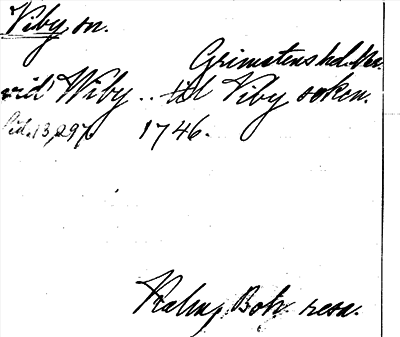 Viby sn.
Grimstens hd. Nke.
vid Wiby .. till Viby socken.
Sid. 13, 297. 1746.
Kalm, Boh. resa.